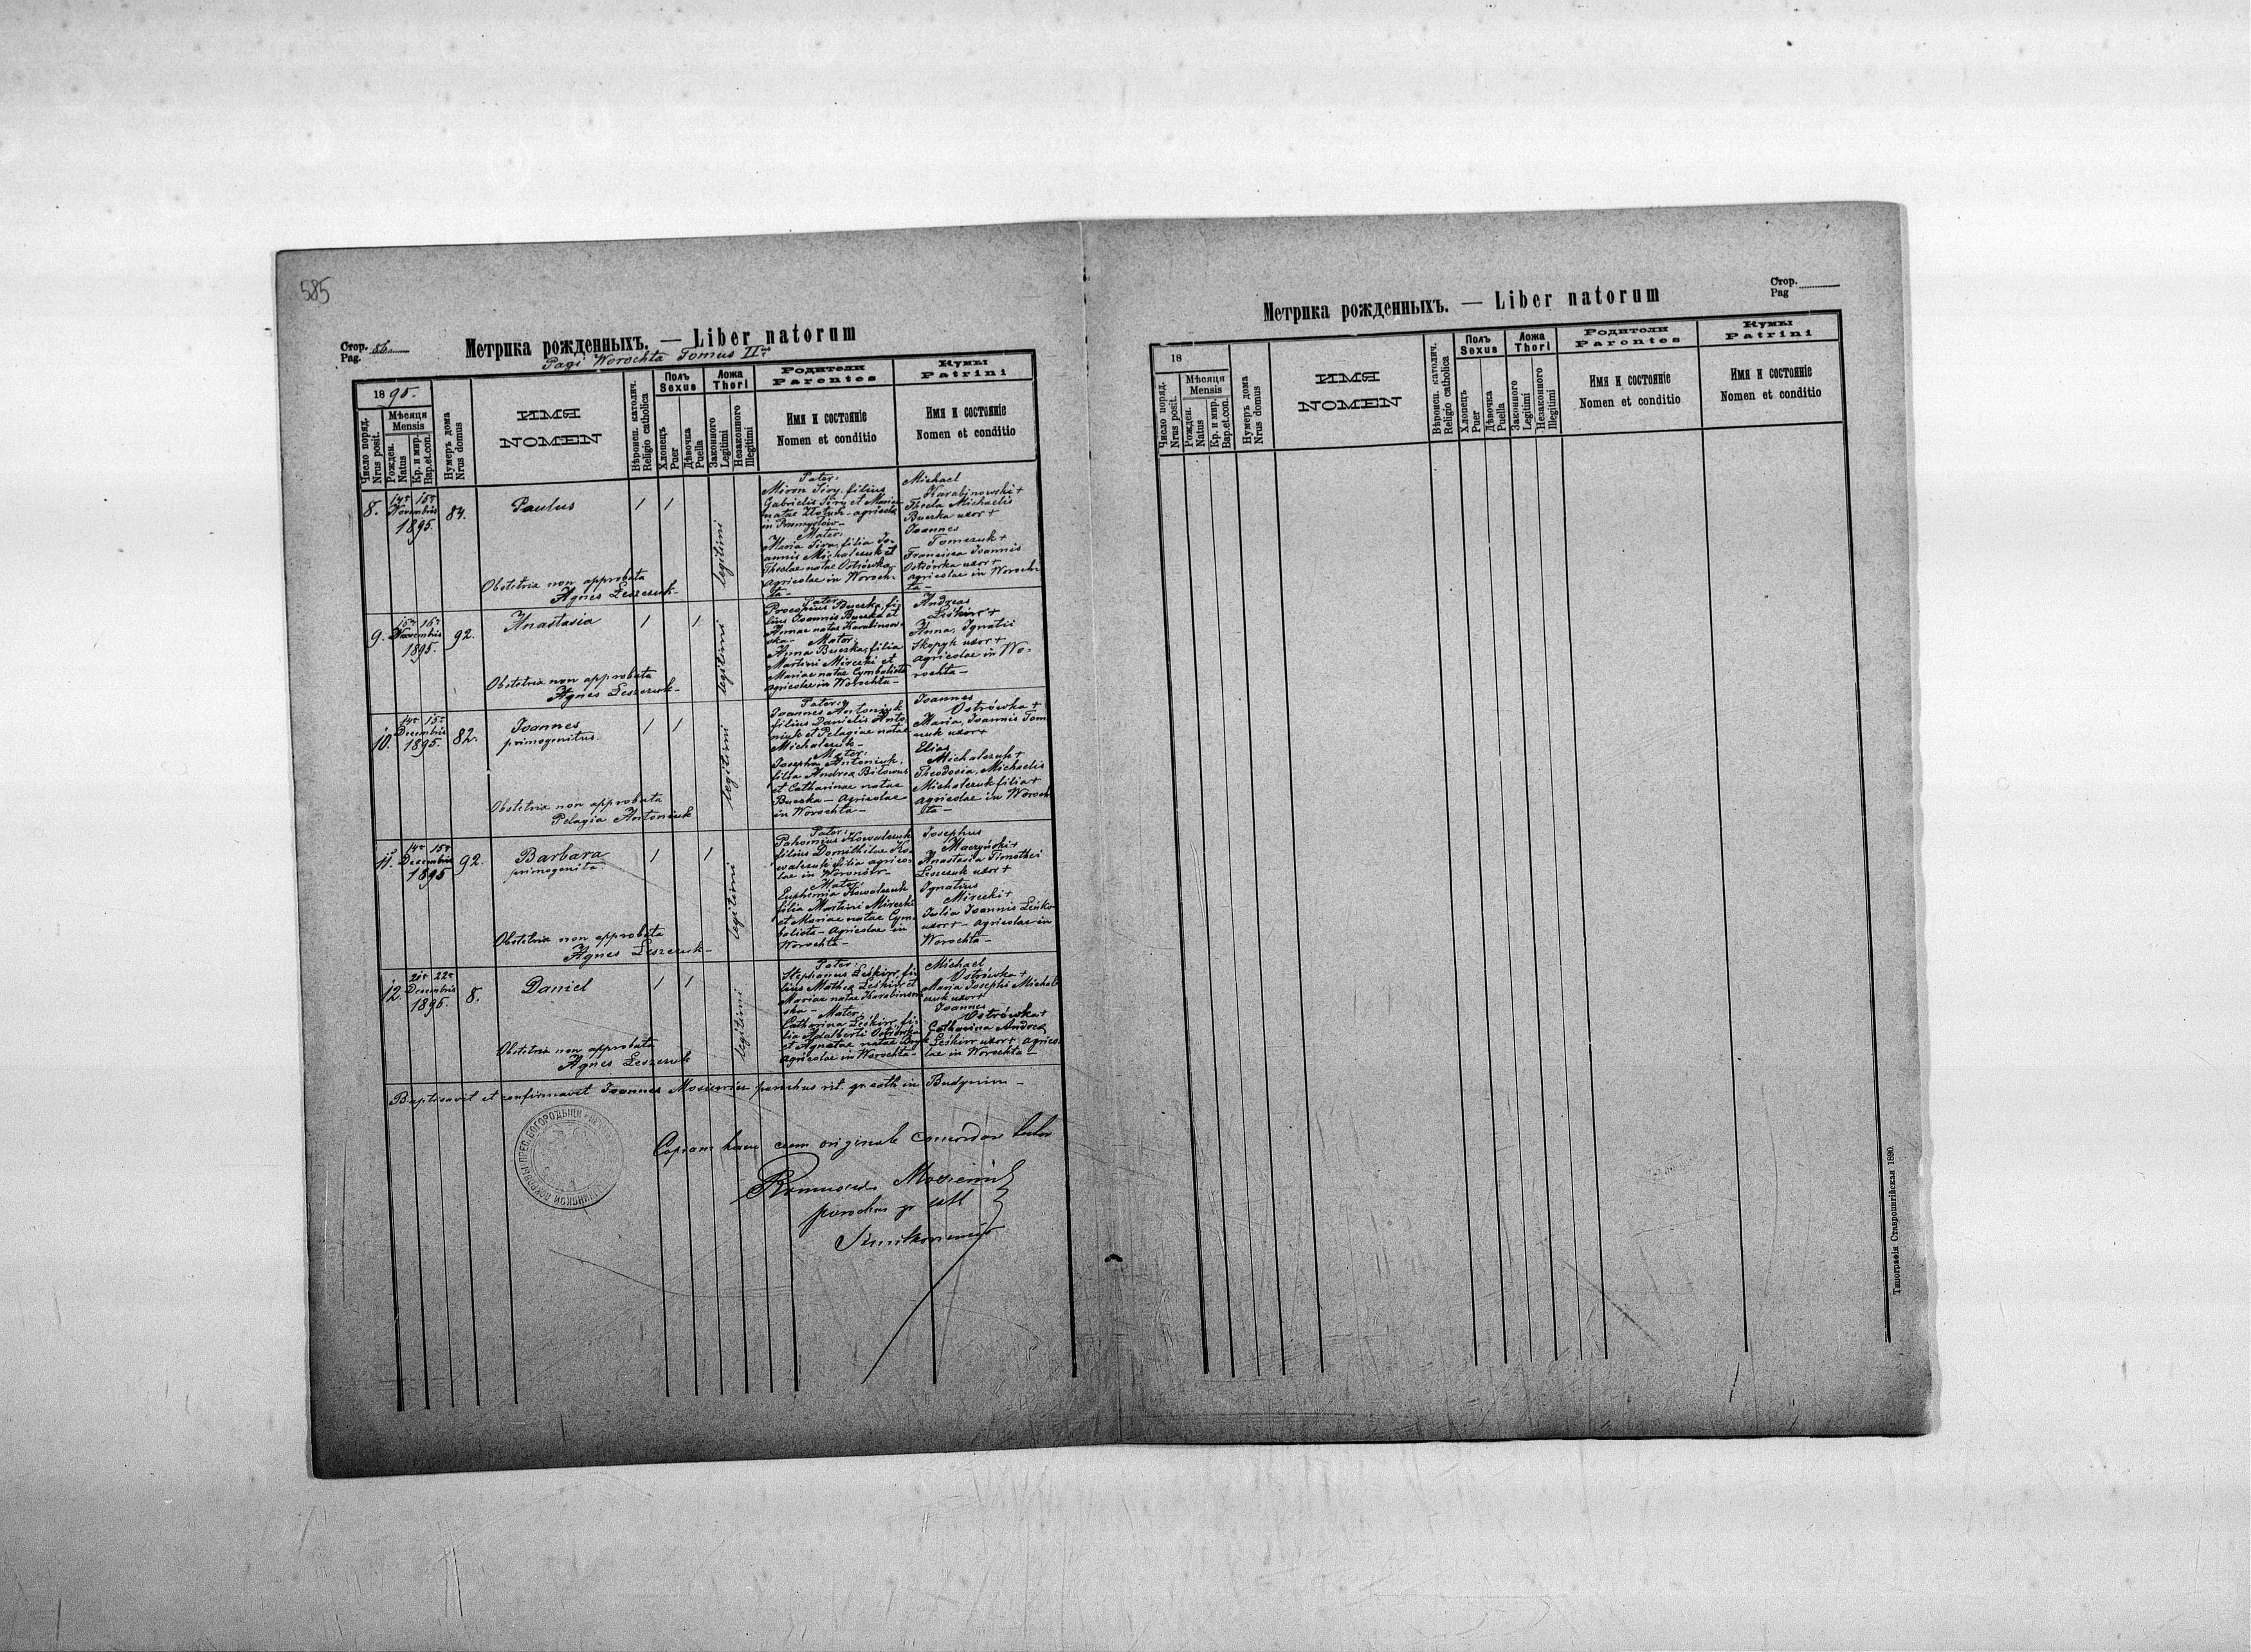 585
Стор.
Pag. 56.
Метрика рожденныхъ. — Liber natorum
Pagi Worochta Tomus II
1895.
Число поряд.
Nrus posit.
Мѣсяця
Mensis
Рожден.
Natus
Кр. и мир.
Bap.et.con.
Нумеръ дома
Nrus domus
ИМЯ
NOMEN
Вѣроисп. католич.
Religio catholica
Полъ
Sexus
Хлопецъ
Puer
Дѣвочка
Puella
Ложа
Thori
Законного
Legitimi
Незаконного
Illegitimi
Родители
Parentes
Имя и состоянiе
Nomen et conditio
Кумы
Patrini
Имя и состоянiе
Nomen et conditio
8.
14a 15a
Novembris
1895.
84.
Paulus
1
1
legitimi
Obstetrix non approbata
Agnes Leszczuk-
Pater:
Miron Siry filius
Gabrielis Siry et Mariae
natae - agricola
in Przemysłów-
Mater:
Maria Sira, filia Jo-
annis Michalczuk et
Theclae natae Ostrówka-
agricolae in Woroch-
ta-
Michael
Karabinowski +
Thecla Michaelis
Buczka uxor +
Joannes
Tomczuk +
Francisca Joannis
Ostrówka uxor +
agricolae in Woroch-
ta-
9.
15a 16a
Novembris
1895.
92.
Anastasia
1
1
legitimi
Obstetrix non approbata
Agnes Leszczuk-
Pater:
Procopius Buczka, fi-
lius Joannis Buczka et
Annae natae Karabinow-
ska- Mater:
Anna Buczka, filia
Martini Mirecki et
Mariae natae Cymbalista
agricolae in Worochta-
Andreas
Leśkiw +
Anna, Ignatii
Skopyk uxor +
agricolae in Wo-
rochta-
10.
14a 15a
Decembris
1895.
82.
Joannes
primogenitus.
1
1
legitimi
Obstetrix non approbata
Pelagia Antoniuk
Pater:
Joannes Antoniuk
filius Danielis Anto-
niuk et Pelagiae natae
Michalczuk-
Mater:
Josepha Antoniuk,
filia Andrea
et Catharinae natae
Buczka - agricolae
in Worochta-
Joannes
Ostrówka +
Maria, Joannis Tom-
czuk uxor +
Elias
Michalczuk +
Theodosia, Michaelis
Michalczuk filia +
agricolae in Woroch-
ta-
11.
14a 15a
Decembris
1895
92.
Barbara
primogenita.
1
1
legitimi
Obstetrix non approbata
Agnes Leszczuk-
Pater:
Pahomius Kowalczuk
filius Domithilae Ko-
walczuk filia agrico-
lae in
Mater:
Euphemia Kowalczuk
filia Martini Mirecki
et Mariae natae Cym-
balista- agricolae in
Worochta-
Josephus
Maczyński +
Anastasia Timothei
Leszczuk uxor +
Ignatius
Mirecki +
Julia Joannis
uxor + - agricolae in
Worochta-
12.
21a 22a
Decembris
1895.
8.
Daniel
1
1
legitimi
Obstetrix non approbata
Agnes Leszczuk
Pater:
Stephanus Leśkiw, fi-
lius Mathea Leśkiw et
Mariae natae Karabinow-
ska- Mater:
Catharina Leśkiw, fi-
lia Adalberti Ostrówka
et Agnetae natae
agricolae in Worochta-
Michael
Ostrówka +
Maria Josephi Michal-
czuk uxor +
Joannes
Ostrówka +
Catharina Andrea
Leśkiw uxor + agrico-
lae in Worochta-
Baptisavit et confirmavit Joannes Mosiewicz parochus rit. gr. cath. in Budynin -
Copiam hanc cum originale concordare testor
Romuald Mosiewicz
parochus gr cath
Стор.
Pag
Метрика рожденныхъ. — Liber natorum
18
Число поряд.
Nrus posit.
Мѣсяця
Mensis
Рожден.
Natus
Кр. и мир.
Bap.et.con.
Нумеръ дома
Nrus domus
ИМЯ
NOMEN
Вѣроисп. католич.
Religio catholica
Полъ
Sexus
Хлопецъ
Puer
Дѣвочка
Puella
Ложа
Thori
Законного
Legitimi
Незаконного
Illegitimi
Родители
Parentes
Имя и состоянiе
Nomen et conditio
Кумы
Patrini
Имя и состоянiе
Nomen et conditio
Типографiя Ставропигiйская 1890.